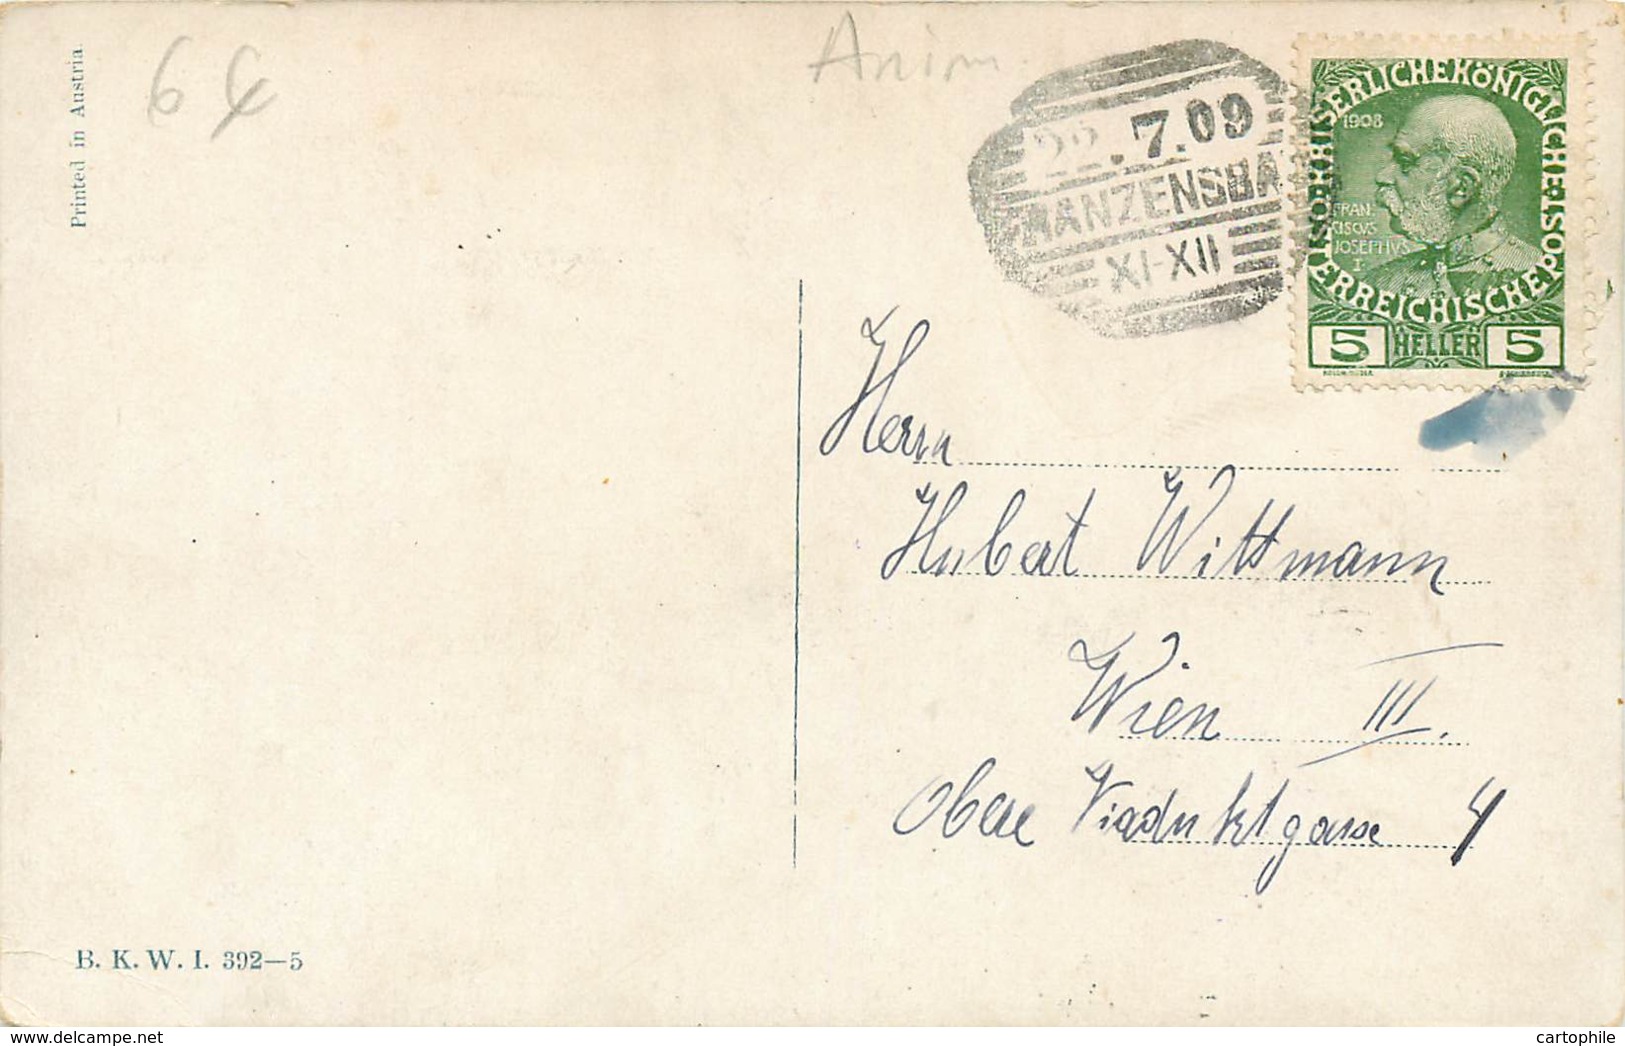 Printed in Austria.
64
Anim
22.7.09
FRANZENSBA
XI-XII
KAISERLICHEKÖNIGLICHE ÖSTERREICHISCHE POST
1908
FRAN
CISCVS
IOSEPHVS
I
5 HELLER 5
Herrn
Hubert Wittmann
Wien III.
Obere Viaduktgasse 4
B. K. W. I. 392—5
cartophile